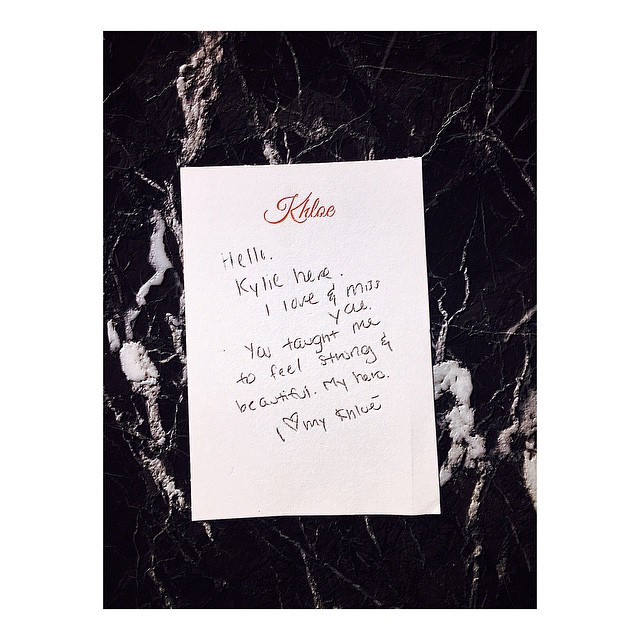 Khloe
Hello.
Kylie here.
I love & miss
you.
You taught me
to feel strong &
beautiful. My hero.
I ♡ my Khloé